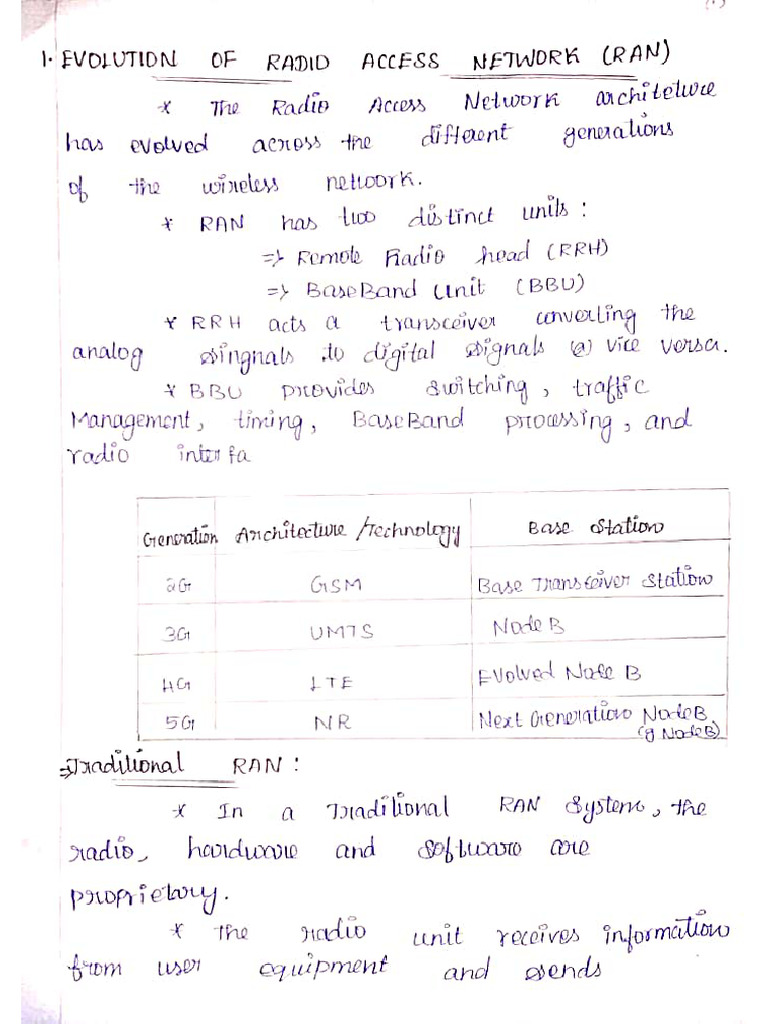 1. EVOLUTION OF RADIO ACCESS NETWORK (RAN)
* The Radio Access Network architeture
has evolved across the different generations
of the wireless network.
* RAN has two distinct units :
=> Remote Radio head (RRH)
=> BaseBand Unit (BBU)
* RRH acts a transceiver converting the
analog singnals to digital signals @ vice versa.
* BBU provides switching, traffic
Management, timing, BaseBand processing, and
radio interfa
Generation Architecture/Technology Base Station
2G GSM Base Transceiver Station
3G UMTS Node B
4G LTE Evolved Node B
5G NR Next Generation NodeB
(g NodeB)
=> Traditional RAN :
* In a Traditional RAN System, the
radio, hardware and software are
proprietary.
* The radio unit receives information
from user equipment and sends